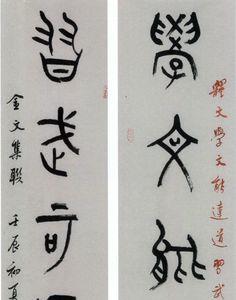 釋文學文能達道習武
學文能
習武可
金文集聯 壬辰初夏